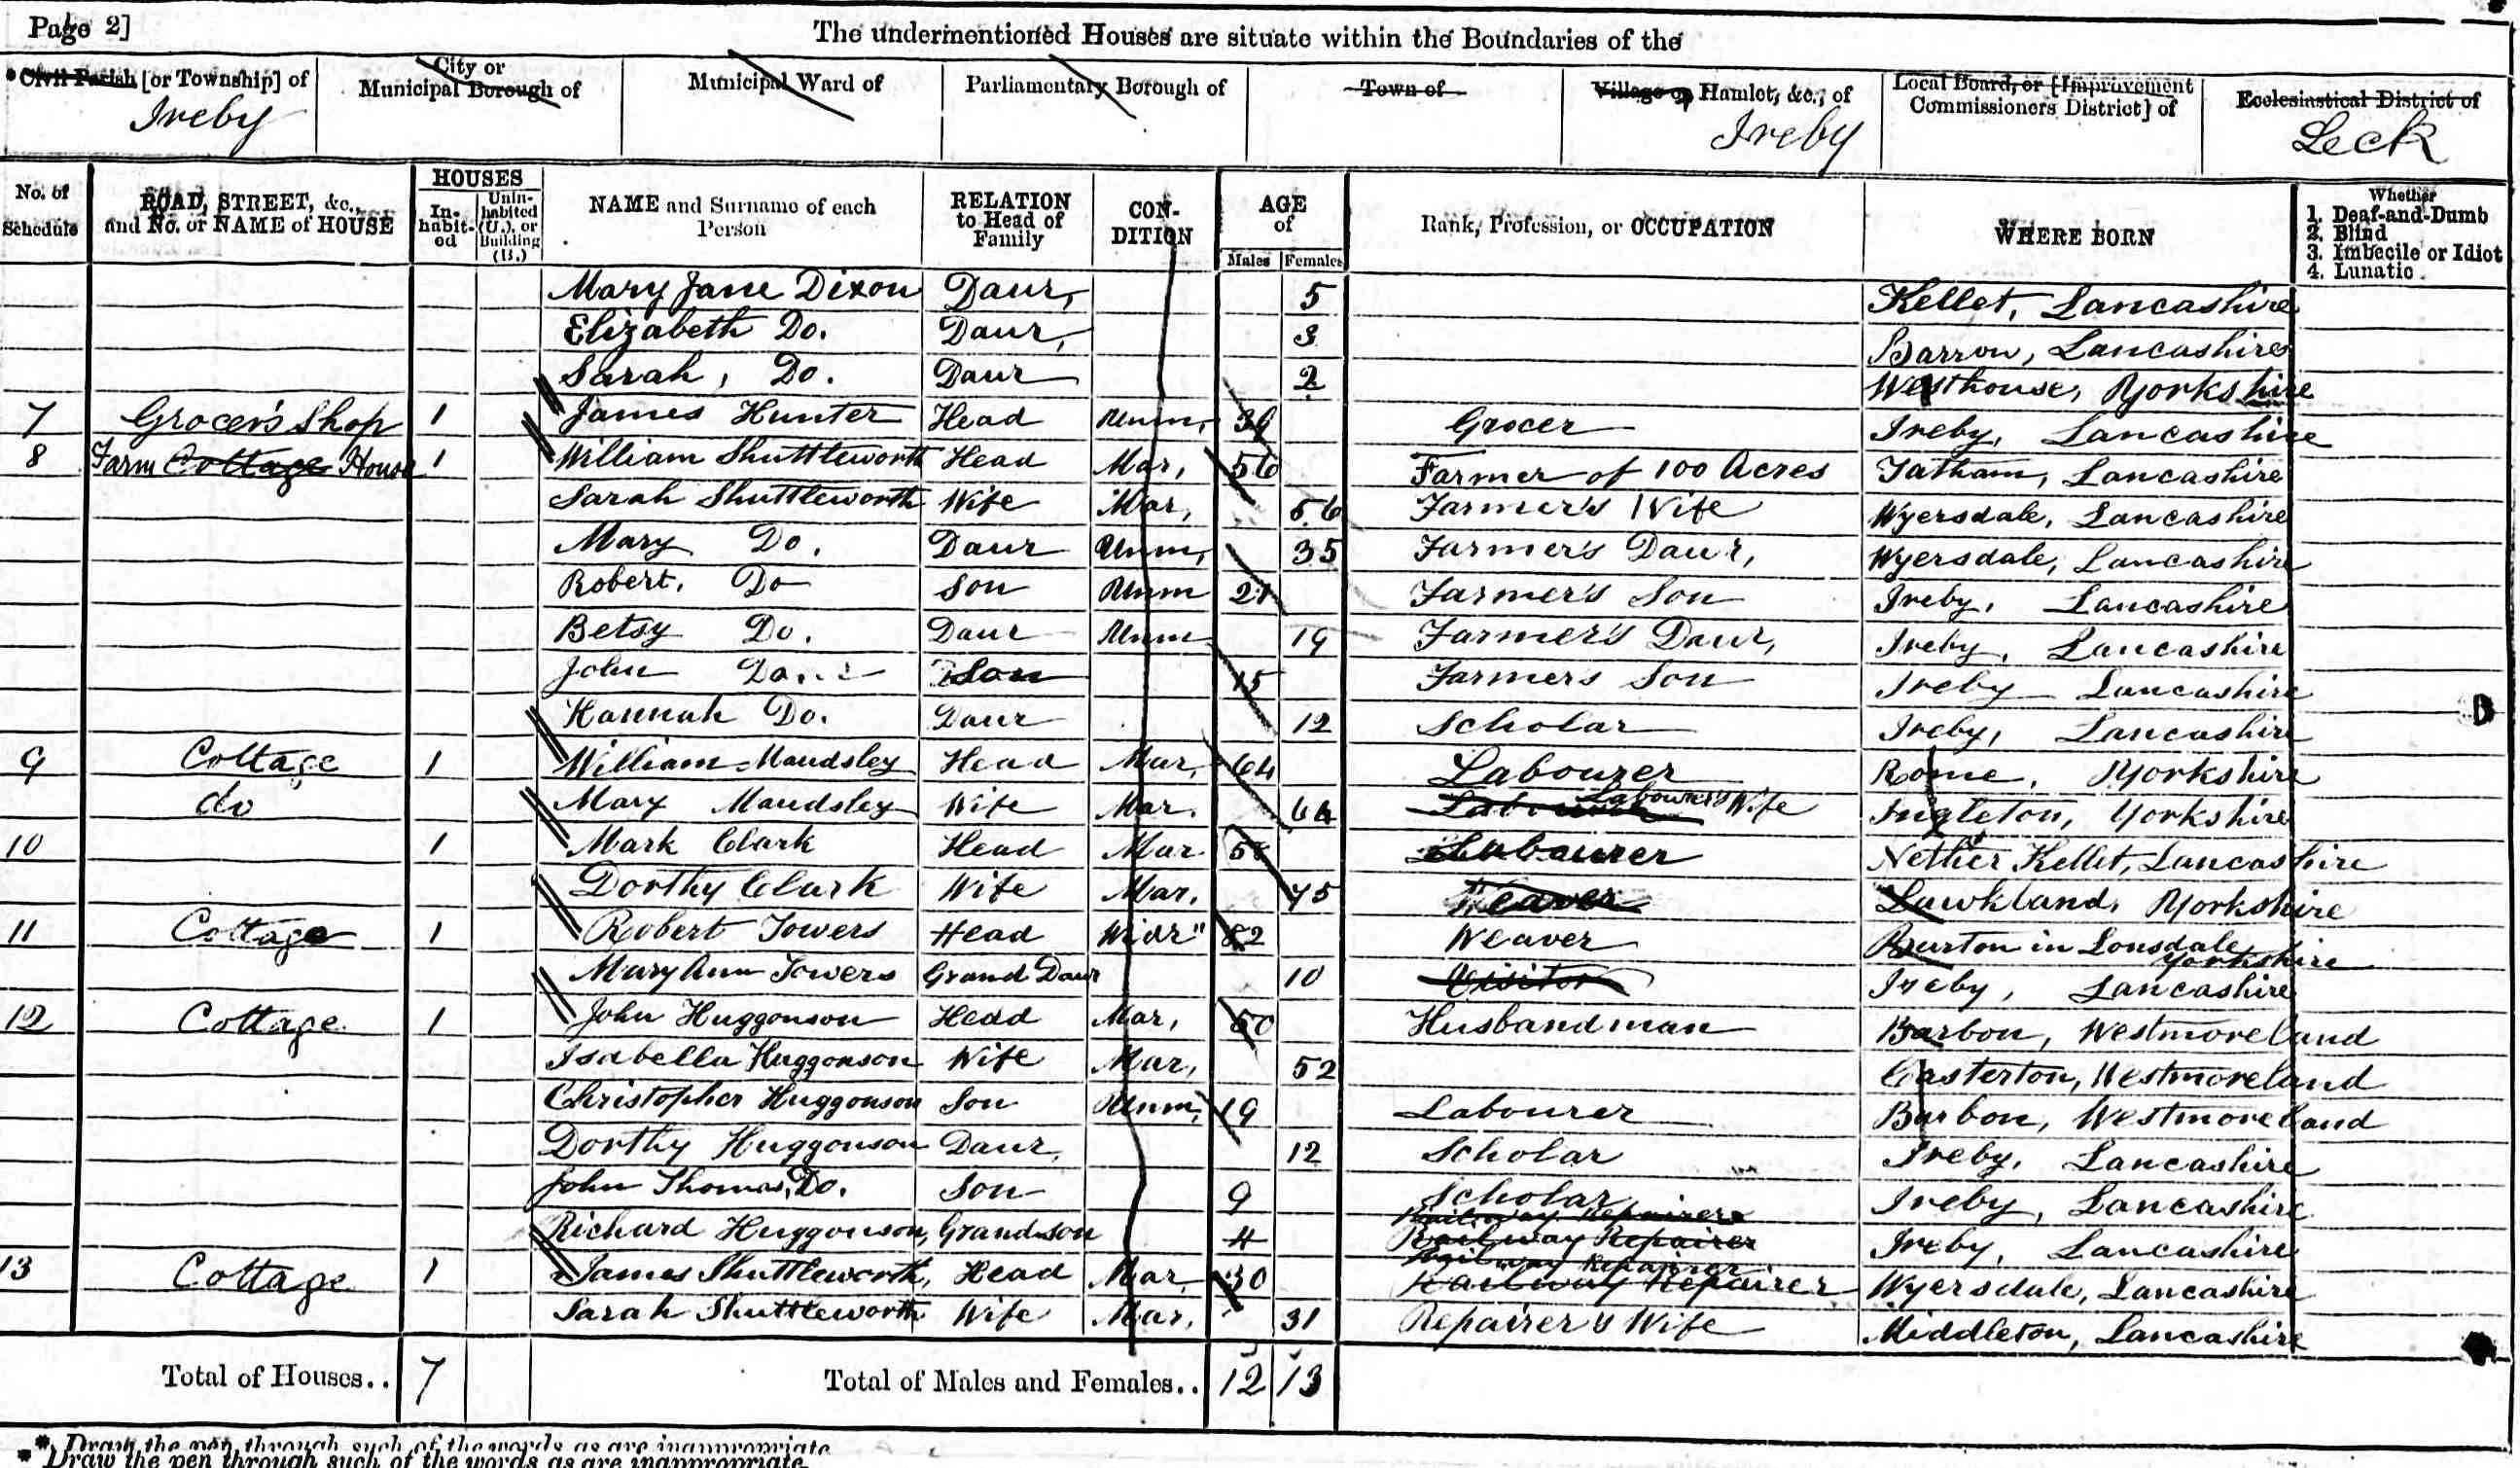 Page 2]
The undermentioned Houses are situate within the Boundaries of the
*Civil Parish [or Township] of
Ireby
City or Municipal Borough of
Municipal Ward of
Parliamentary Borough of
Town of
Village or Hamlet, &c., of
Ireby
Local Board, or [Improvement Commissioners District] of
Ecclesiastical District of
Leck
No. of Schedule
ROAD, STREET, &c., and No. or NAME of HOUSE
HOUSES
In-habit-ed
Unin-habited (U.), or Building (B.)
NAME and Surname of each Person
RELATION to Head of Family
CON-DITION
AGE of
Males Females
Rank, Profession, or OCCUPATION
WHERE BORN
Whether
1. Deaf-and-Dumb
2. Blind
3. Imbecile or Idiot
4. Lunatic
Mary Jane Dixon Daur, 5 Kellet, Lancashire
Elizabeth Do. Daur, 3 Barrow, Lancashire
Sarah, Do. Daur 2 Westhouse, Yorkshire
7 Grocer's Shop 1 James Hunter Head Unm, Grocer Ireby, Lancashire
8 Farm Cottage House 1 William Shuttleworth Head Mar, 56 Farmer of 100 Acres Tatham, Lancashire
Sarah Shuttleworth Wife Mar, 56 Farmer's Wife Wyersdale, Lancashire
Mary Do. Daur Unm, 35 Farmer's Daur, Wyersdale, Lancashire
Robert, Do Son Unm 21 Farmer's Son Ireby, Lancashire
Betsy Do. Daur Unm 19 Farmer's Daur, Ireby, Lancashire
John Do. Son 15 Farmers Son Ireby Lancashire
Hannah Do. Daur 12 Scholar Ireby, Lancashire
9 Cottage 1 William Maudsley Head Mar, 64 Labourer Rome, Yorkshire
do Mary Maudsley Wife Mar. 64 Labourer's Wife Ingleton, Yorkshire
10 1 Mark Clark Head Mar Labourer Nether Kellet, Lancashire
Dorthy Clark Wife Mar. 75 Weaver Lawkland, Yorkshire
11 Cottage 1 Robert Towers Head Widr" 82 Weaver Burton in Lonsdale Yorkshire
Mary Ann Towers Grand Daur 10 Visitor Ireby, Lancashire
12 Cottage 1 John Huggonson Head Mar, 50 Husbandman Barbon, Westmoreland
Isabella Huggonson Wife Mar, 52 Casterton, Westmoreland
Christopher Huggonson Son Unm, 19 Labourer Barbon, Westmoreland
Dorthy Huggonson Daur, 12 Scholar Ireby, Lancashire
John Thomas, Do. Son 9 Scholar Ireby, Lancashire
Richard Huggonson, Grandson 4 Railway Repairer Railway Repairer Ireby, Lancashire
13 Cottage 1 James Shuttleworth, Head Mar, 30 Railway Repairer Railway Repairer Wyersdale, Lancashire
Sarah Shuttleworth Wife Mar, 31 Repairer's Wife Middleton, Lancashire
Total of Houses.. 7 Total of Males and Females.. 12 13
* Draw the pen through such of the words as are inappropriate
* Draw the pen through such of the words as are inappropriate.